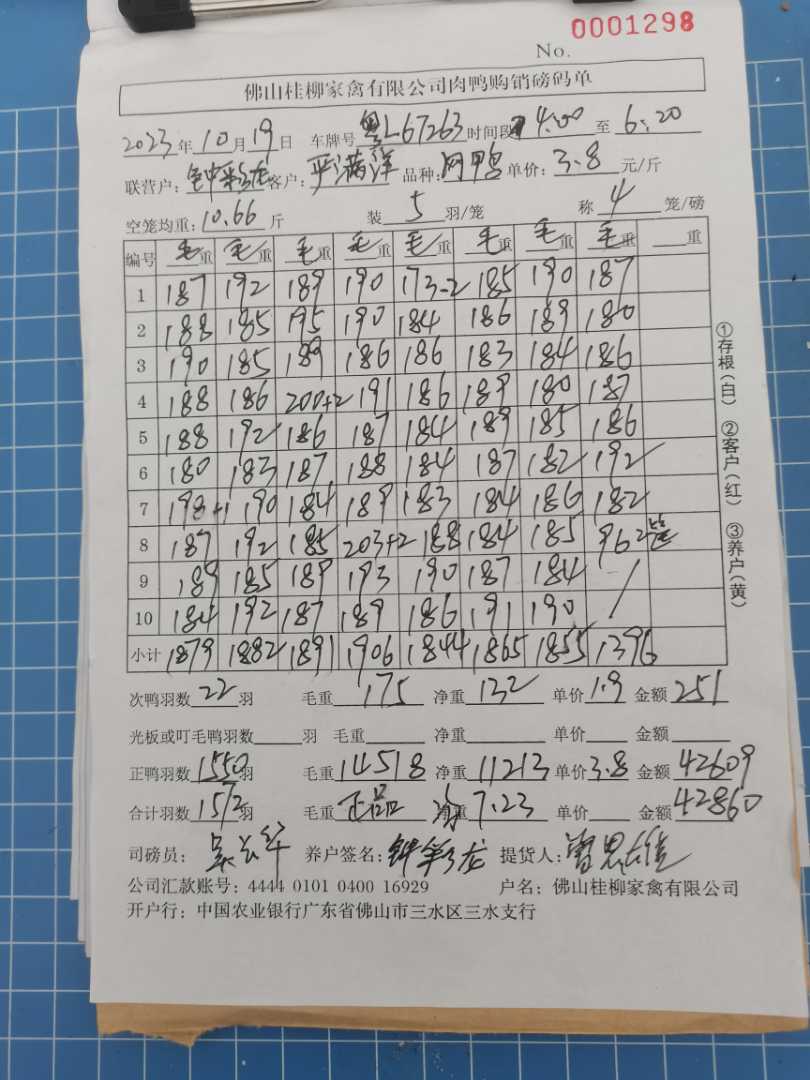 No. 0001298
佛山桂柳家禽有限公司肉鸭购销磅码单
2023年10月19日 车牌号 粤L67263 时间段 4:00 至 6:20
联营户: 客户: 严满洋 品种: 网鸭 单价: 3.8 元/斤
空笼均重: 10.66 斤 装 5 羽/笼 称 4 笼/磅
编号 毛重 毛重 毛重 毛重 毛重 毛重 毛重 毛重 重
1 187 192 189 190 173-2 185 190 187
2 188 185 195 190 184 186 189 180
3 190 185 189 186 186 183 184 186
4 188 186 200+2 191 186 189 180 187
5 188 192 186 187 184 189 185 186
6 180 183 187 188 184 187 182 192
7 198+1 190 184 189 183 184 186 182
8 187 192 185 203+2 188 184 185 96 2笼
9 189 185 189 193 190 187 184 /
10 184 192 187 189 186 191 190 /
小计 1879 1882 1891 1906 1844 1865 1855 1396
次鸭羽数 22 羽 毛重 175 净重 132 单价 1.9 金额 251
光板或叮毛鸭羽数 羽 毛重 净重 单价 金额
正鸭羽数 1550 羽 毛重 14518 净重 11213 单价 3.8 金额 42609
合计羽数 1572 羽 毛重 正品 净重 7.23 单价 金额 42860
司磅员: 养户签名: 钟彩龙 提货人:
公司汇款账号: 4444 0101 0400 16929 户名: 佛山桂柳家禽有限公司
开户行: 中国农业银行广东省佛山市三水区三水支行
①存根(白) ②客户(红) ③养户(黄)